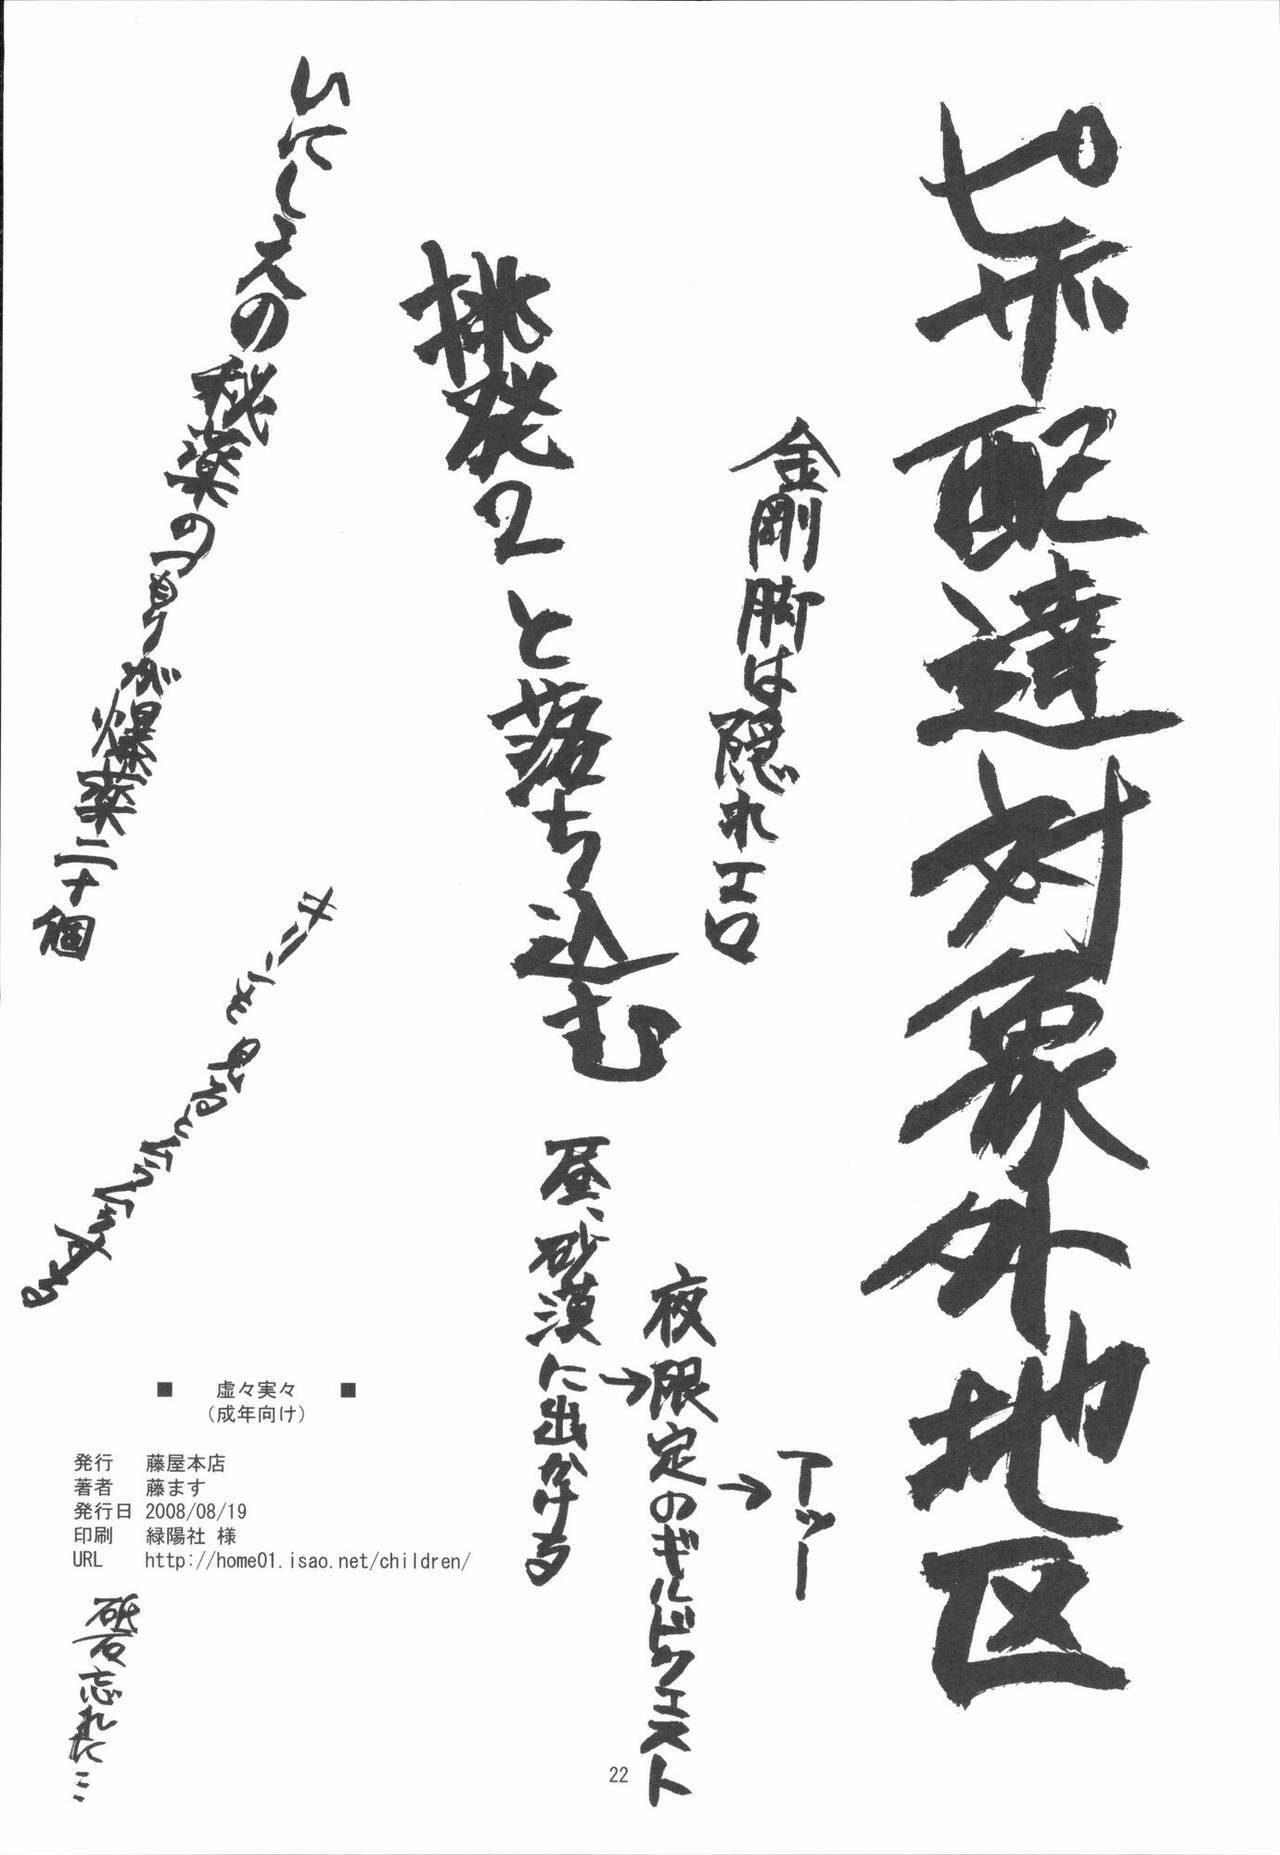 ピザ配達対象外地区
金剛脚は隠れエロ
挑発2と落ち込む
いにしえの秘薬のつもりが爆薬二十個
キリンを見るとムラムラする
昼、砂漠に出かける
→
夜限定のギルドクエスト
→
アッー
■ 虚々実々 ■
(成年向け)
発行 藤屋本店
著者 藤ます
発行日 2008/08/19
印刷 緑陽社 様
URL http://home01.isao.net/children/
砥石忘れた…
22